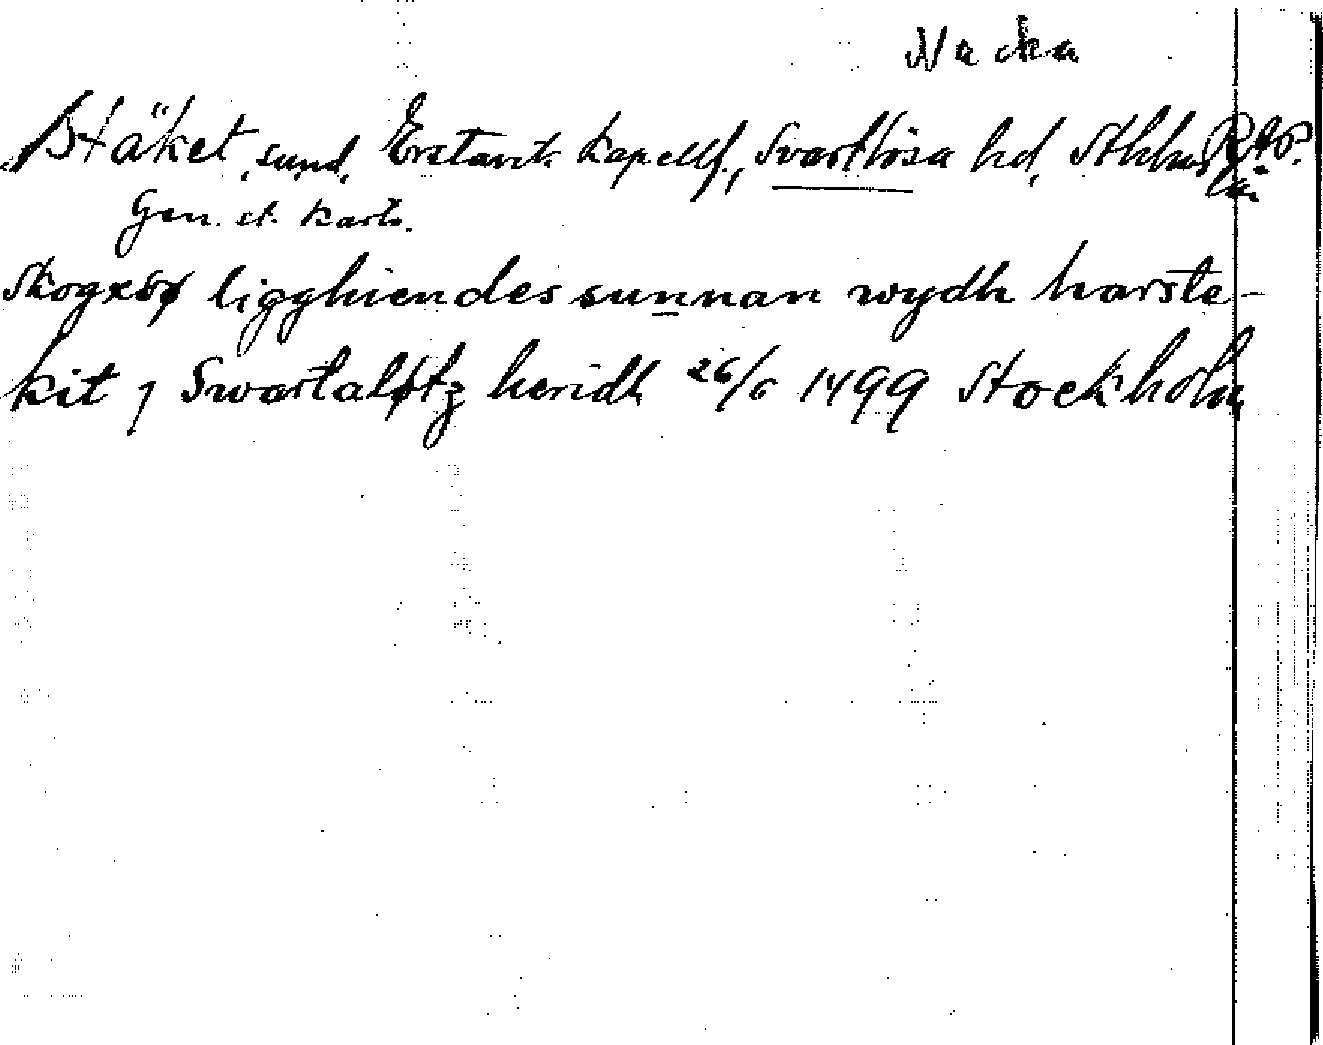 Nacka
Stäket, sund, Erstavik kapellf., Svartlösa hd, Sthlms län RAP.
Gen. st. kart.
Skogxsø ligghiendes sunnan wydh harste-
kit j Swartaløtz heridh 26/6 1499 Stockholm